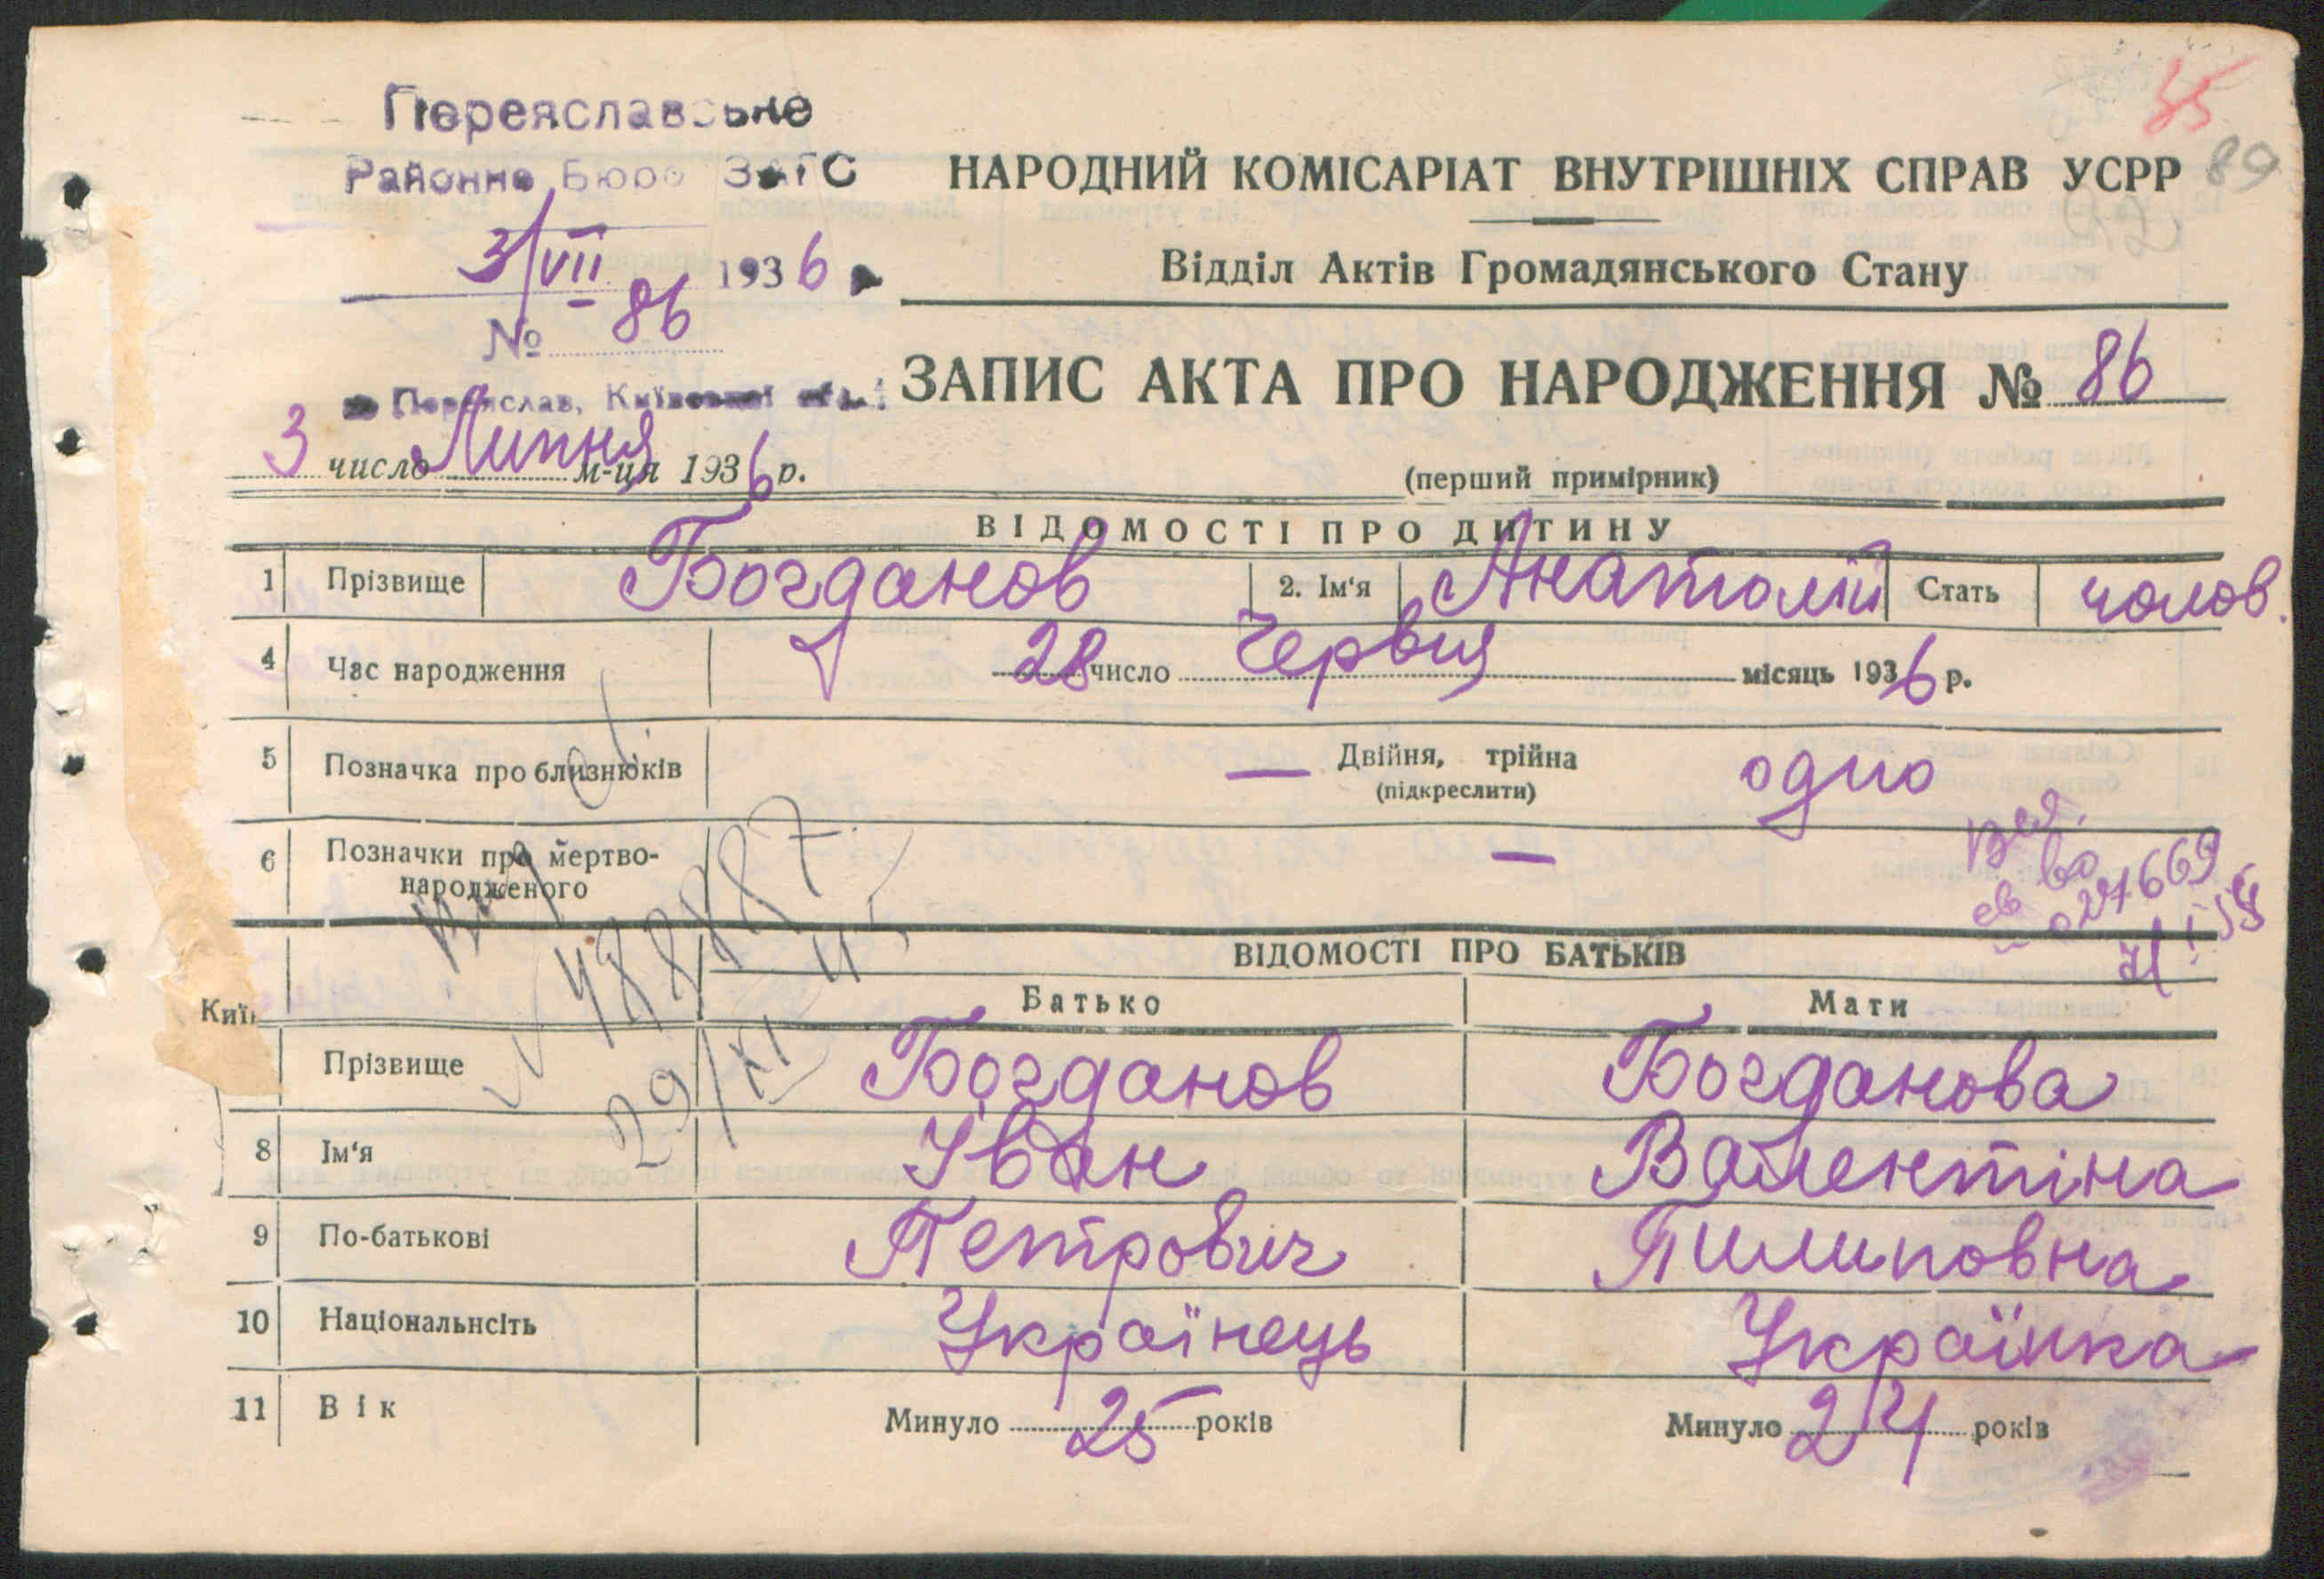 Переяславське
Районне Бюро ЗАГС
3/VII 1936
№ 86
м. Переяслав, Київської обл.
3 число Липня м-ця 1936 р.
55
89
НАРОДНИЙ КОМІСАРІАТ ВНУТРІШНІХ СПРАВ УСРР
Відділ Актів Громадянського Стану
ЗАПИС АКТА ПРО НАРОДЖЕННЯ № 86
(перший примірник)
ВІДОМОСТІ ПРО ДИТИНУ
1 Прізвище Богданов 2. Ім'я Анатолій Стать чолов.
4 Час народження 28 число Червня місяць 1936 р.
5 Позначка про близнюків — Двійня, трійна одно
(підкреслити)
6 Позначки про мертво-
народженого —
488887
29/XI 45
027669
ВІДОМОСТІ ПРО БАТЬКІВ
Батько Мати
Прізвище Богданов Богданова
8 Ім'я Іван Валентіна
9 По-батькові Петрович Пилиповна
10 Національнсіть Українець Українка
11 Вік Минуло 25 років Минуло 24 років